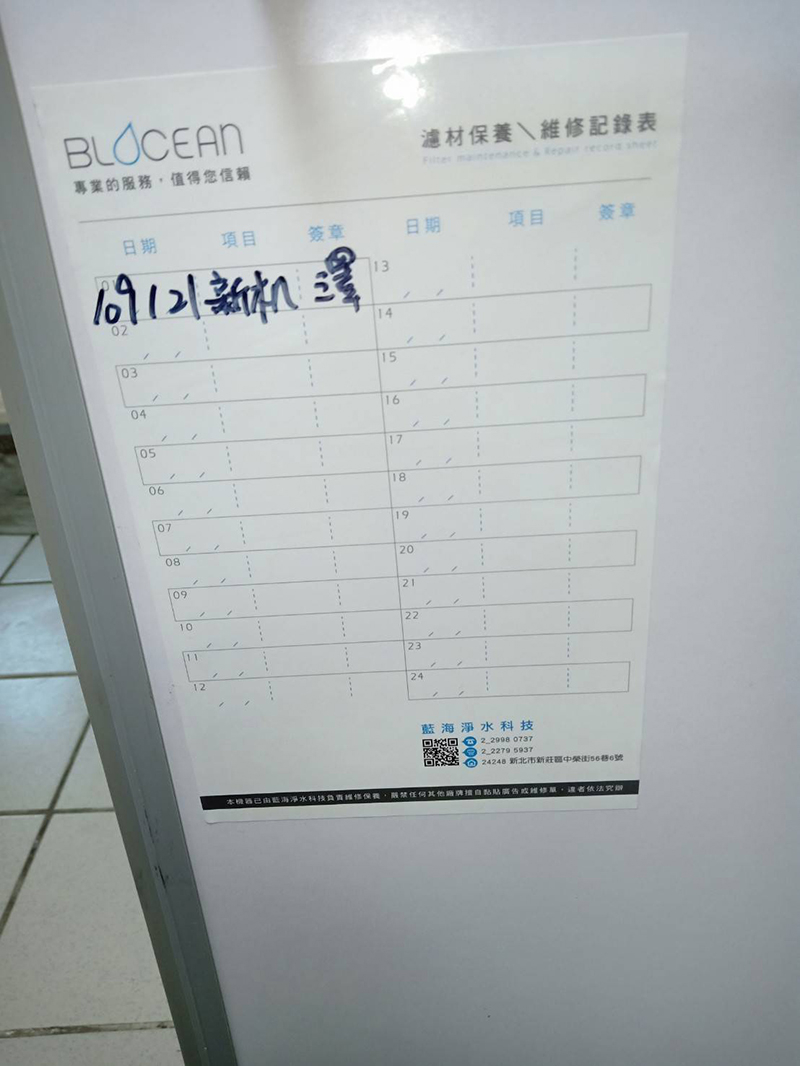 BLOCEAN
專業的服務，值得您信賴
濾材保養＼維修記錄表
Filter maintenance & Repair record sheet
日期 項目 簽章 日期 項目 簽章
109 1 21 新机 澤
02
03
04
05
06
07
08
09
10
11
12
13
14
15
16
17
18
19
20
21
22
23
24
藍海淨水科技
2_2998 0737
2_2279 5937
24248 新北市新莊區中榮街56巷6號
本機器已由藍海淨水科技負責維修保養，嚴禁任何其他廠牌擅自黏貼廣告或維修單，違者依法究辦